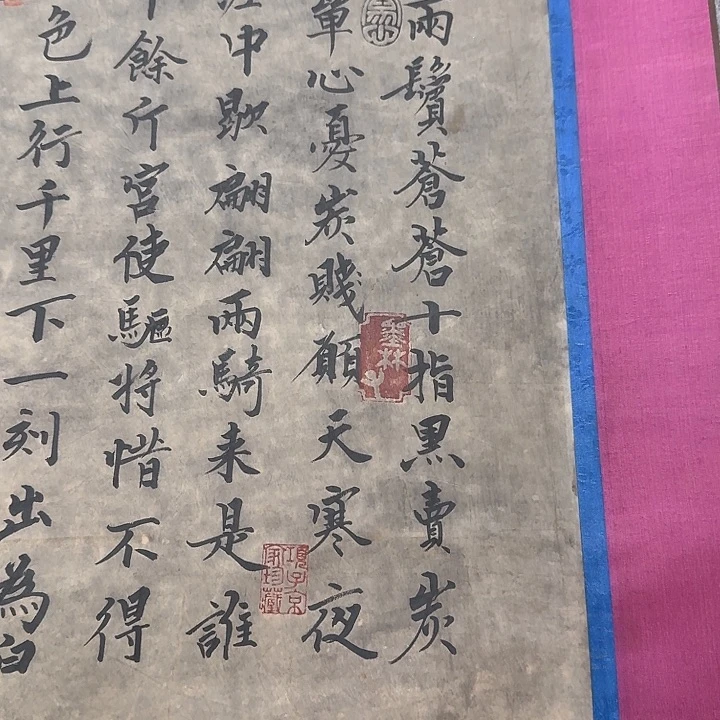 兩鬢蒼蒼十指黑賣炭
單心憂炭賤願天寒夜
中歇翩翩兩騎来是誰
餘斤宮使驅將惜不得
色上行千里下一刻出為白
墨林
項子京家珍藏